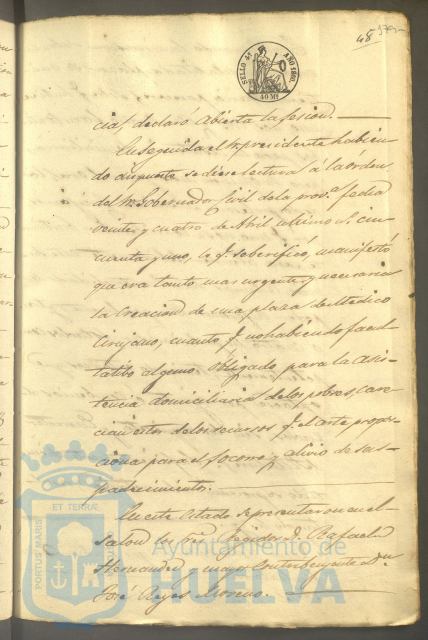 48 179
SELLO 4º AÑO 1860.
40 Ms
cia, declaró abierta la sesion.
En seguida el Sr presidente habien-
do dispuesto se diese lectura á la órden
del Sr Gobernador Civil de la prova. fecha
veinte y cuatro de Abril ultimo nº. cin-
cuenta y uno, lo q. se berificó, manifestó
que era tanto mas urgente y necesaria
la creacion de una plaza de Medico
Cirujano, cuanto q. no habiendo facul-
tatibo alguno obligado para la asis-
tencia domiciliaria de los pobres, care-
cian estos de los recursos q. el arte propor-
ciona para el socorro y alivio de sus
padecimientos.
En este estado se presentaron en el
salon los Regidor D. Rafael
Hernandez y mayor Contribuyente Dn
José Reyes Moreno.
PORTUS MARIS ET TERRÆ CUSTODIA
Ayuntamiento de
HUELVA